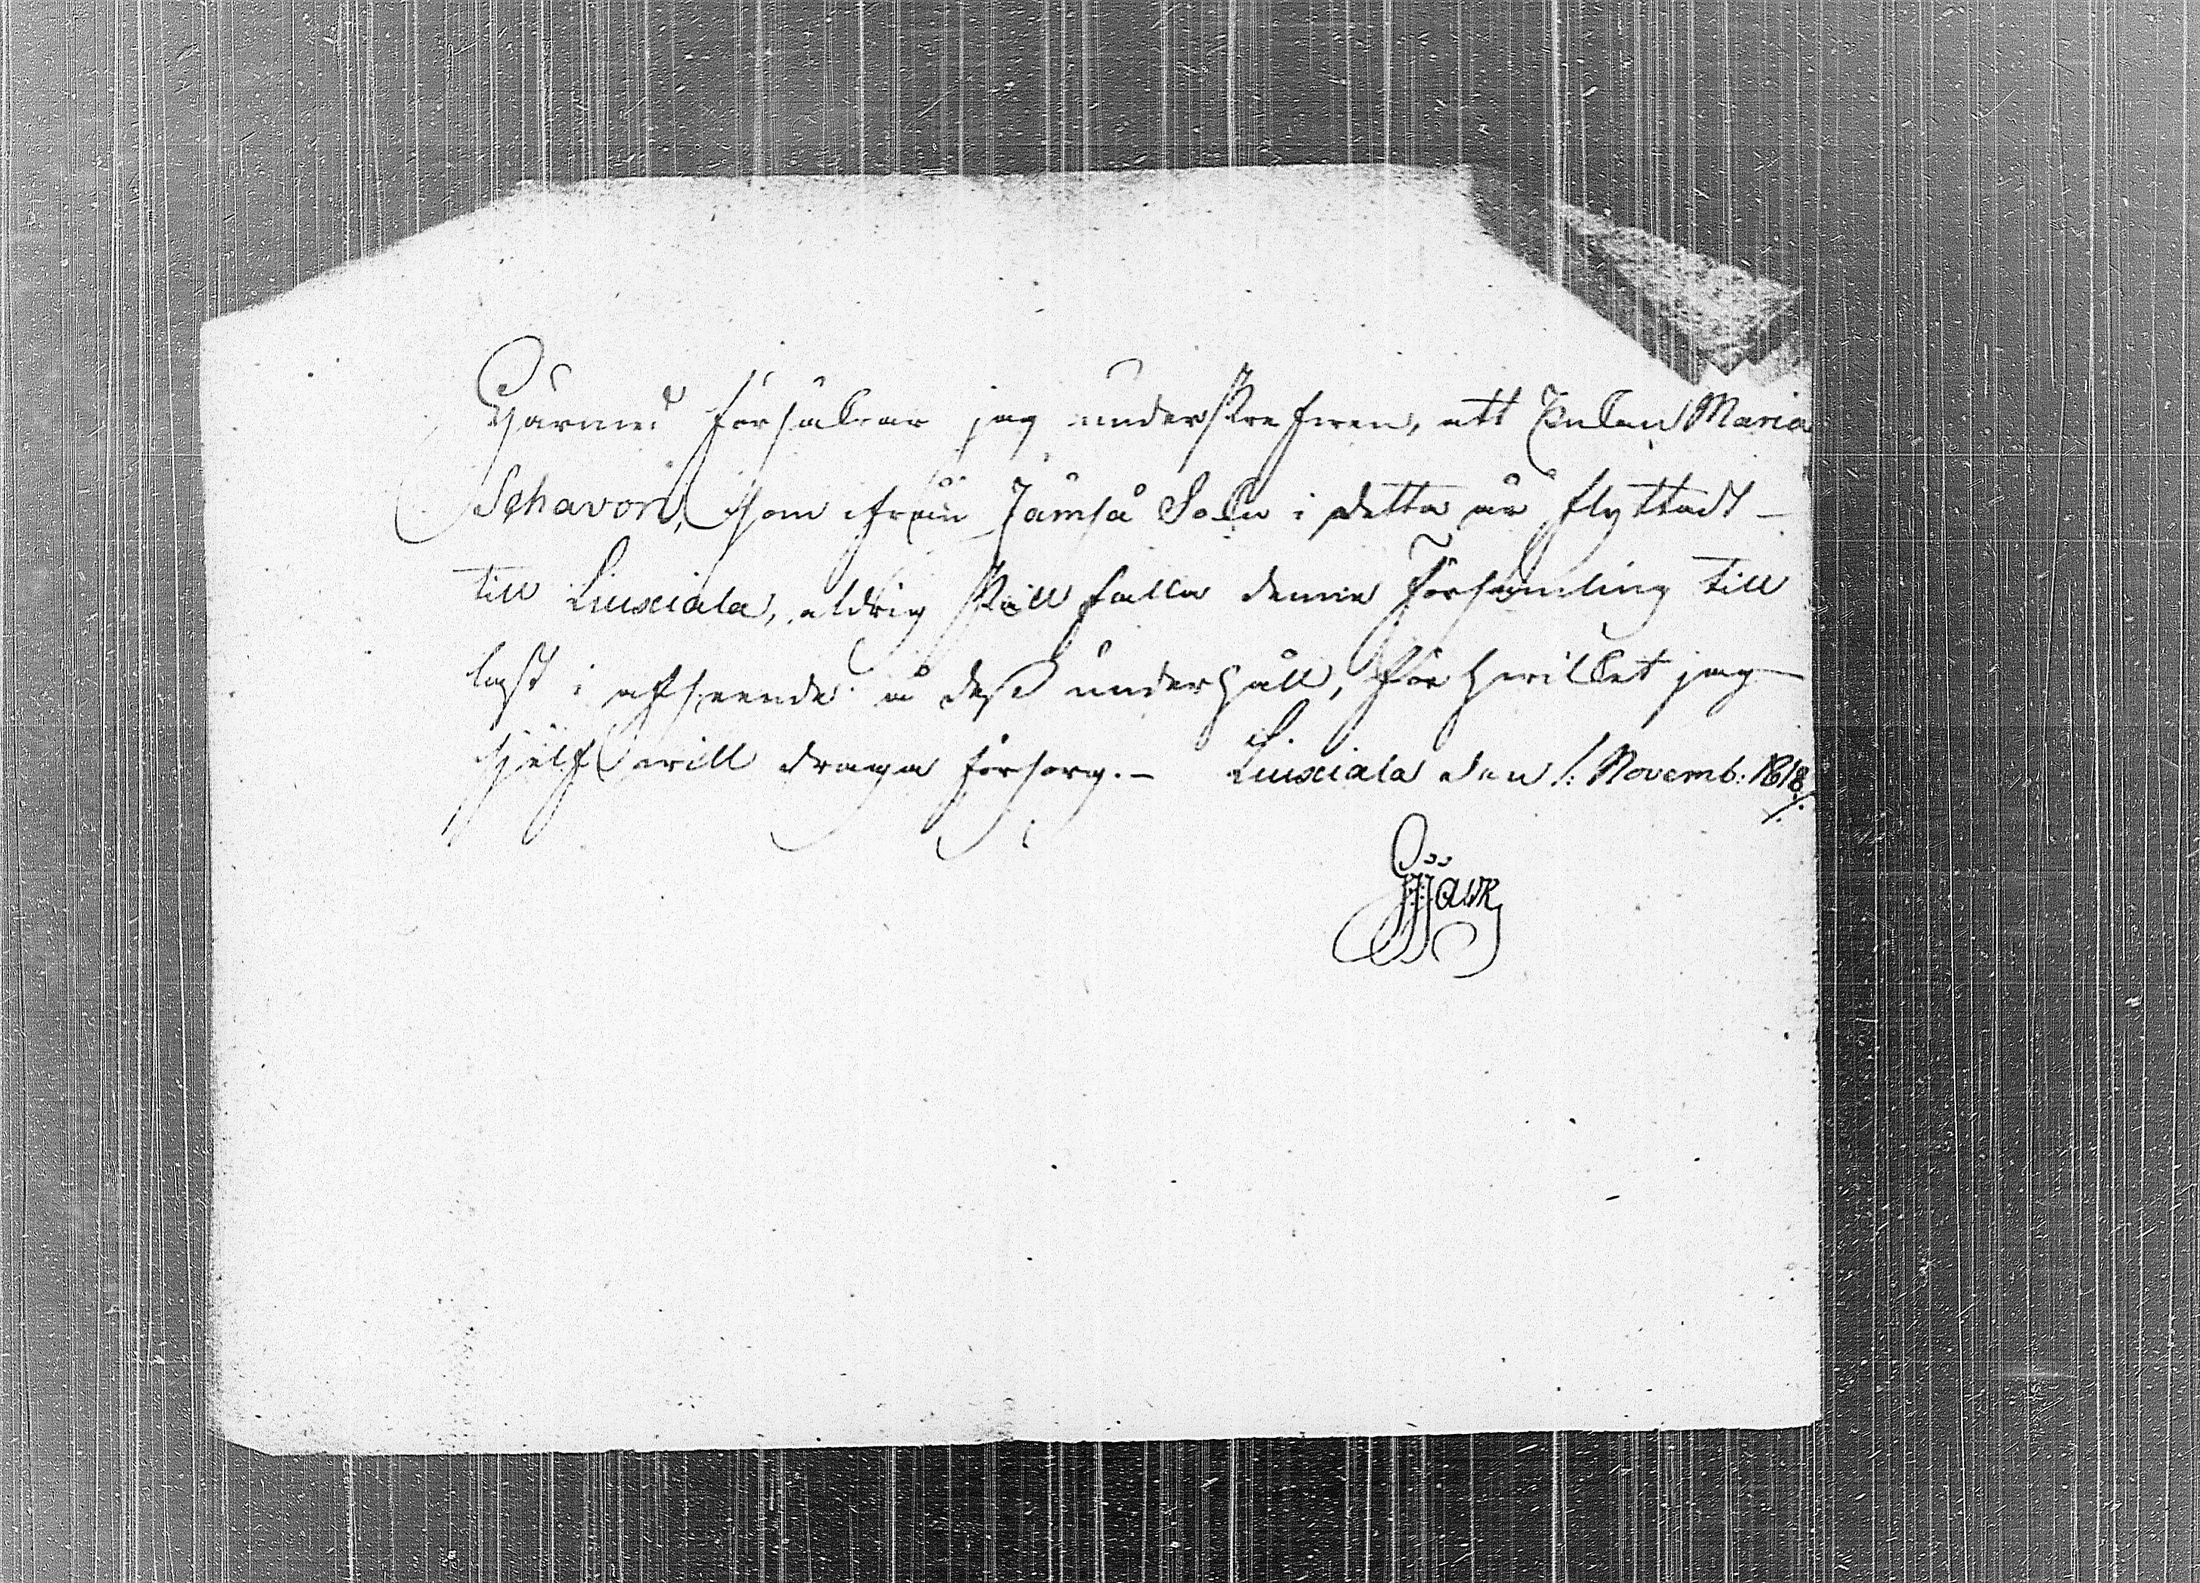 Härmed försäkrar jag underskrefven, att Enkan Maria
Schavon, som ifrån Jämsä Sokn i detta år flyttadt
till Liuxiala, aldrig skall falla denna Församling till
last i afseende å dess underhåll, för hvilket jag
sjelf vill draga försorg. – Liuxiala den 1. Novemb: 1818.